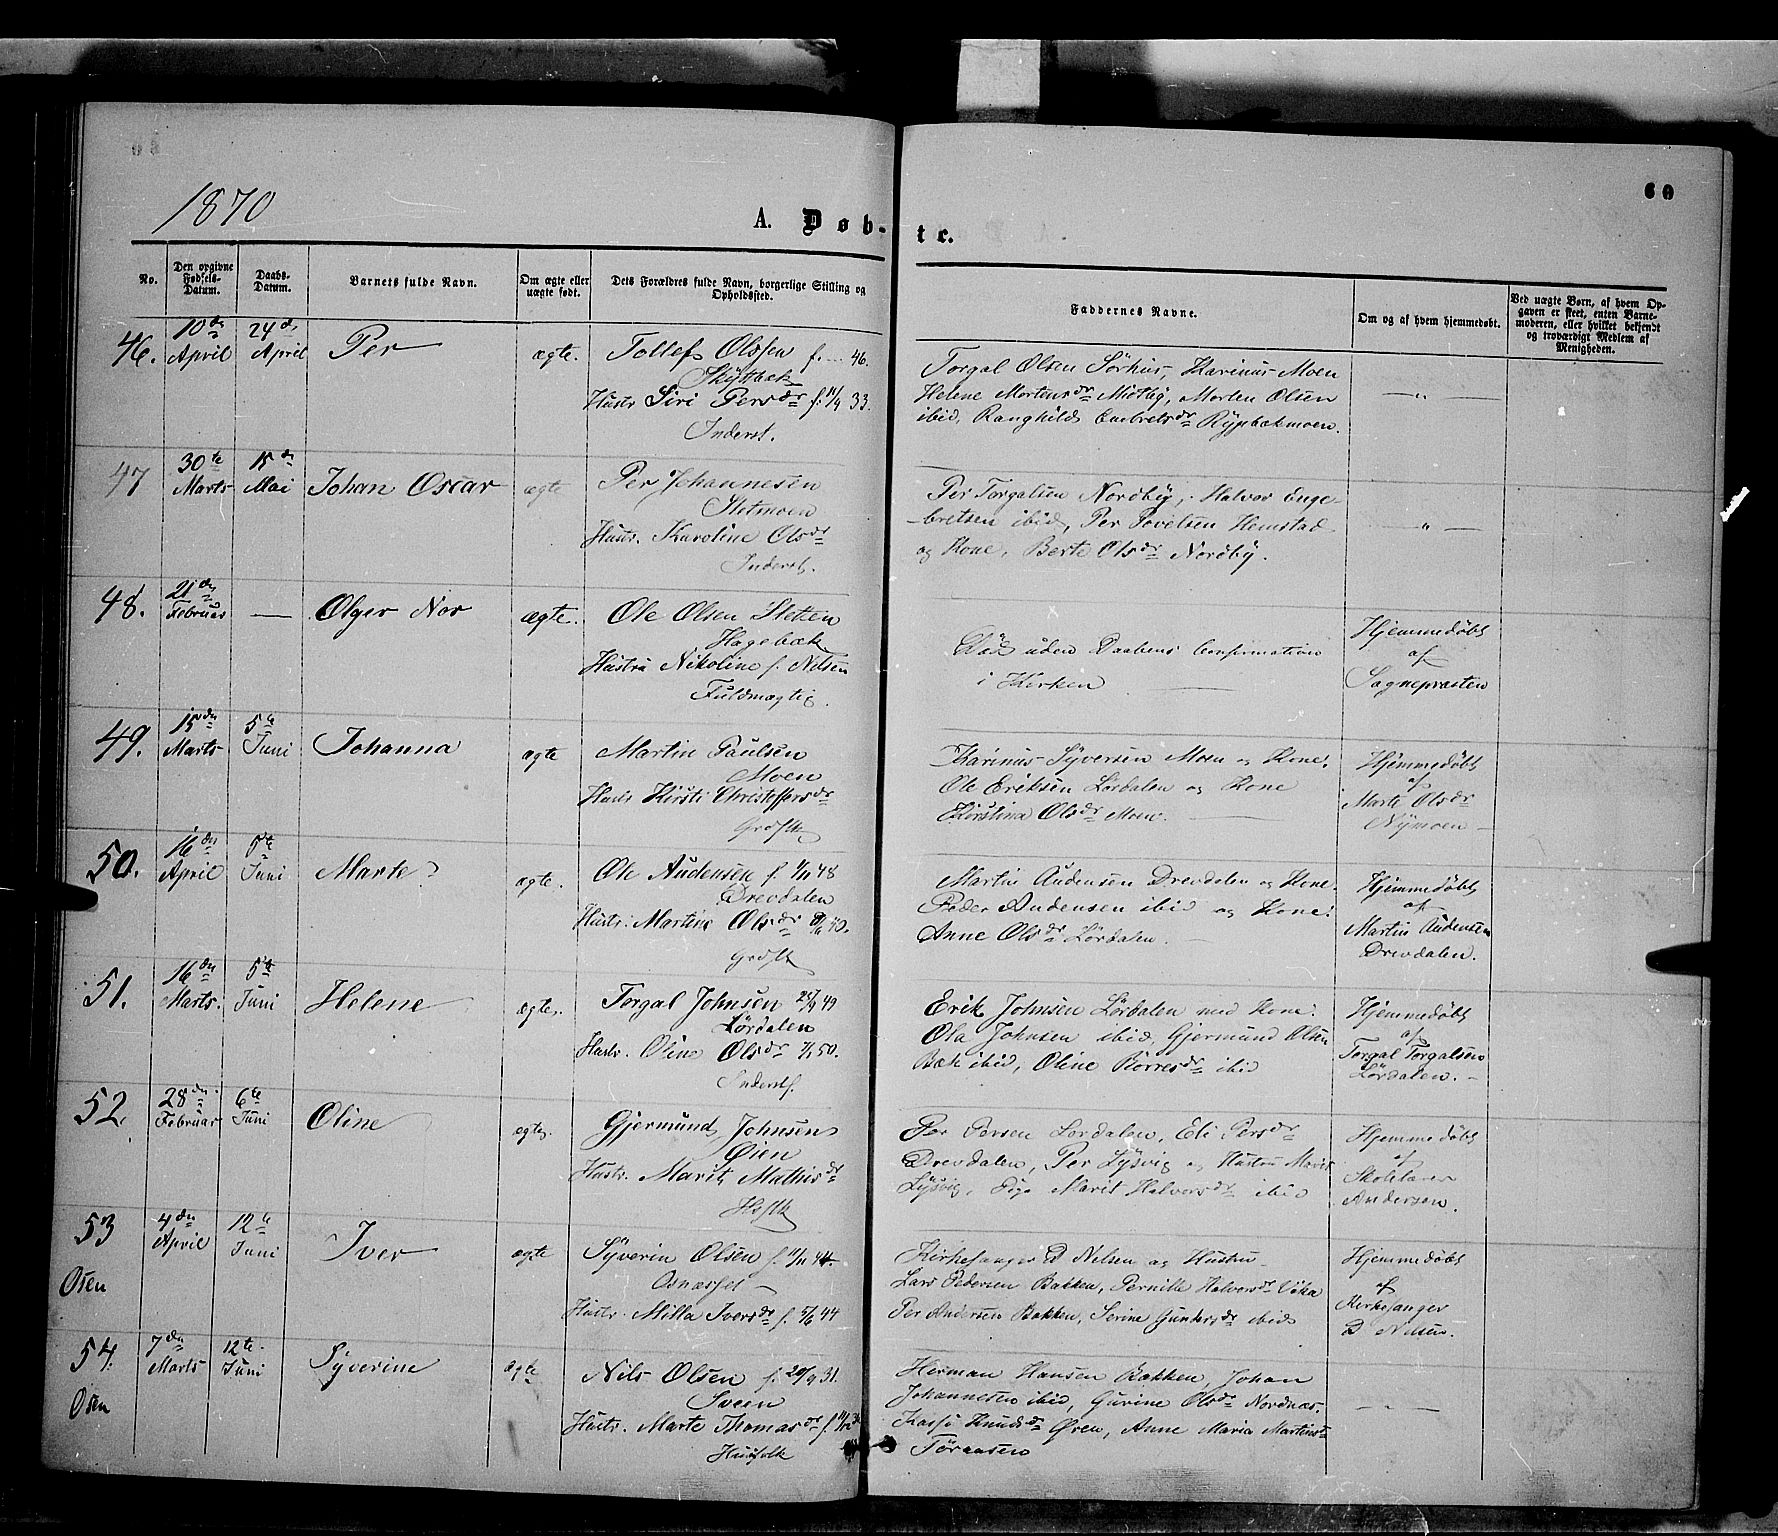 1870
60
A. Døb-te.
No.
Den opgivne Fødsels-Datum.
Daabs-Datum.
Barnets fulde Navn.
Om ægte eller uægte født.
Dets Forældres fulde Navn, borgerlige Stilling og Opholdssted.
Faddernes Navne.
Om og af hvem hjemmedøbt.
Ved uægte Børn, af hvem Opgaven er skeet, enten Barnemoderen, eller hvilket bekjendt og troværdigt Medlem af Menigheden.
46. 10de April 24d. April Per ægte.
Tollef Olsen f. -- 46.
Skyttbæk
Hustr Siri Persdr f. 11/9 33.
Inderst.
Torgal Olsen Sörhus, Karinus Moen
Helene Mortensdr Midtby, Morten Olsen
ibid, Ranghild Embretsdr Rypbækmoen.
— " —
47 30te Marts 15de Mai Johan Oscar ægte
Per Johannesen
Stetmoen
Hustr. Karoline Olsdr
Inderst.
Per Torgalsen Nordby, Halvor Enge-
-bretsen ibid, Per Povelsen Hemstad
og Kone, Berte Olsdr Nordby.
— " —
48. 21de Februar — Olger Nor ægte.
Ole Olsen Stetten
Hagebæk
Hustru Nikoline f. Nilsen
Fuldmægtig.
Død uden Daabens Confirmation
i Kirken —
Hjemmedøbt
af
Sognepræsten
49. 15de Marts 5te Juni Johanna ægte
Martin Paulsen
Moen
Hustr Kirsti Christoffersdr
Grdfk
Karinus Syversen Moen og Kone.
Ole Eriksen Lördalen og Kone
Kirstina Olsdr Moen. —
Hjemmedøbt
af
Marte Olsdr
Nymoen —
50. 16de April 5te Juni Marte ægte.
Ole Audensen f. 1/11 48
Drevdalen
Hustr. Martine Olsdr 40.
Grdfk
Martin Audensen Drevdalen og Kone.
Peder Audensen ibid og Kone.
Anne Olsdr Lördalen. —
Hjemmedøbt
af
Martin Audensen
Drevdalen.
51. 16de Marts. 5te Juni Helene ægte.
Torgal Johnsen 49
Lördalen
Hustr. Oline Olsdr 7/1 50.
Inderst.
Erik Johnsen Lördalen med Kone.
Ola Johnsen ibid, Gjermund Olsen
Bæk ibid, Oline Börresdr ibid
Hjemmedøbt
af
Torgal Torgalsen
Lördalen. —
52. 28de Februar 6te Juni Oline ægte.
Gjermund Johnsen
Øien
Hustr. Marit Mathisdr
Hsfk
Per Persen Lördalen, Eli Persdr
Drevdalen, Per Lysvig og Hustru Marit
Lysvig, Pige Marit Halvorsdr ibid
Hjemmedøbt
af
Skolelærer
Andersen.
53 Osen 4de April 12te Juni Iver ægte
Syverin Olsen f. 11/11 44.
Osnæsset —
Hustr. Milla Iversdr f. 5/6 44
Kirkesanger D Nilsen og Hustru
Lars Pedersen Bakken, Pernille Halvorsdr
Per Andersen Bakken, Serine Gundersdr ibid
Hjemmedøbt
af
Kirkesanger
D Nilsen.
54. Osen 7de Marts 12te. Juni Syverine ægte
Nils Olsen f. 20/9 31.
Sveen
Hustr. Marte Thomasdr f.
Husfolk
Herman Hansen Bakken, Johan
Johannesen ibid, Gurine Olsdr Nordnæs.
Knudsdr Øren, Anne Maria Martinsdr
— " —